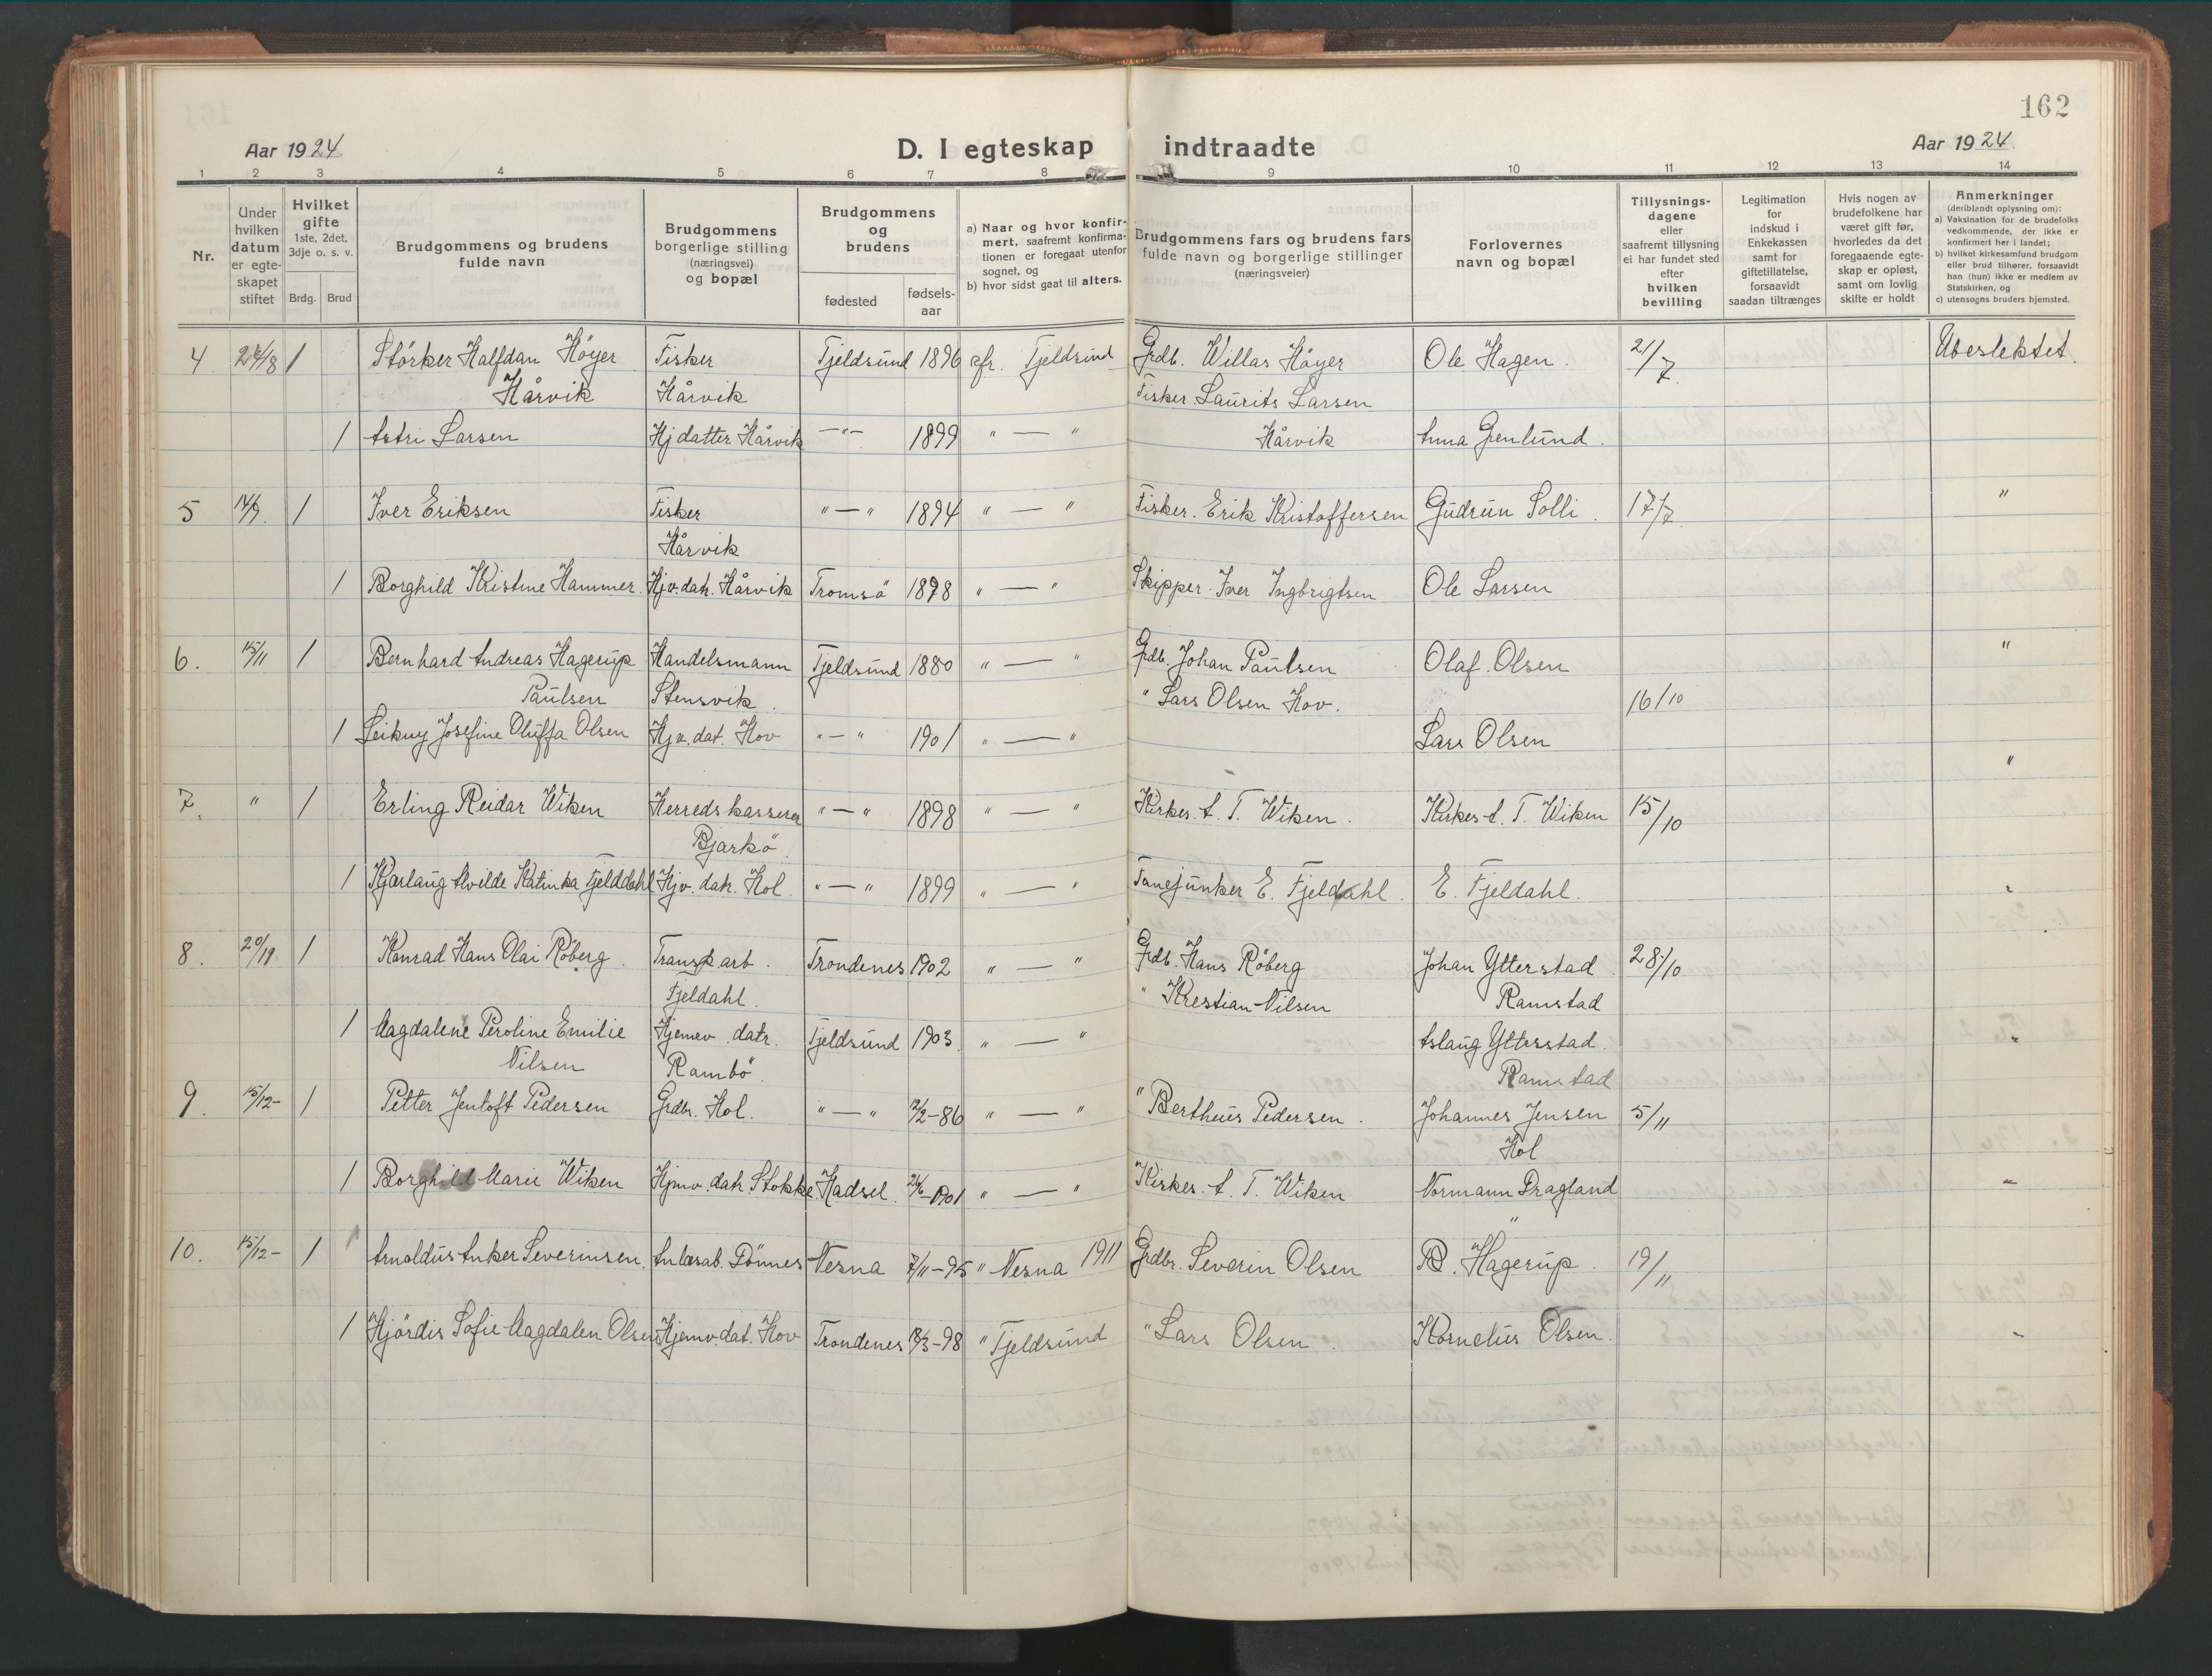 162
Aar 1924
D. I egteskap indtraadte
Aar 1924
1 2 3 4 5 6 7 8 9 10 11 12 13 14
Nr.
Under hvilken datum er egte-skapet stiftet
Hvilket gifte 1ste, 2det, 3dje o. s. v.
Brdg. Brud
Brudgommens og brudens fulde navn
Brudgommens borgerlige stilling (næringsvei) og bopæl
Brudgommens og brudens
fødested
fødsels-aar
a) Naar og hvor konfir-mert, saafremt konfirma-tionen er foregaat utenfor sognet, og
b) hvor sidst gaat til alters.
Brudgommens fars og brudens fars fulde navn og borgerlige stillinger (næringsveier)
Forlovernes navn og bopæl
Tillysnings-dagene eller saafremt tillysning ei har fundet sted efter hvilken bevilling
Legitimation for indskud i Enkekassen samt for giftetillatelse, forsaavidt saadan tiltrænges
Hvis nogen av brudefolkene har været gift før, hvorledes da det foregaaende egte-skap er opløst, samt om lovlig skifte er holdt
Anmerkninger (deriblandt oplysning om):
a) Vaksination for de brudefolks vedkommende, der ikke er konfirmert her i landet;
b) hvilket kirkesamfund brudgom eller brud tilhører, forsaavidt han (hun) ikke er medlem av Statskirken, og
c) utensogns bruders hjemsted.
4 24/8 1 Störker Halfdan Höyer Fisker Tjeldsund 1896 kfr. Tjeldsund Grdb. Willas Höyer Ole Hagen. 21/7. Ubeslektet.
Hårvik Hårvik Fisker Laurits Larsen
1 Astri Larsen Hj datter Hårvik -"- 1899 " — " Hårvik Anna Grenlund.
5 14/9. 1 Iver Eriksen Fisker " — " 1894 " — " Fisker. Erik Kristoffersen Gudrun Solli. 17/7 "
Hårvik
1 Borghild Kristine Hammer. Hjv. datr. Hårvik Tromsö 1898 " — " Skipper. Iver Ingbrigtsen Ole Larsen
6. 15/11 1 Bernhard Andreas Hagerup Handelsmann Tjeldsund 1880 " — " Grdb. Johan Paulsen Olaf Olsen "
Paulsen Stensvik. " Lars Olsen Hov. 16/10
1 Leikny Josefine Oluffa Olsen Hjv. dat. Hov " — " 1901 " — " Lars Olsen
7. " 1 Erling Reidar Wiken Herredskasserer " — " 1898 " — " Kirkes. A. T. Wiken. Kirkes. A. T. Wiken 15/10 "
Bjarkö.
1 Kjærlaug Alvilde Katinka Fjelddahl Hjv. datr. Hol. " — " 1899 " — " Fanejunker E. Fjeldahl. E. Fjeldahl. "
8. 20/19 1 Konrad Hans Olai Röberg. Transp. arb. Trondenes 1902 " — " Grdb. Hans Röberg Johan Ytterstad 28/10
Fjeldahl. " Krestian Nilsen Ramstad
1 Magdalene Peroline Emilie Hjemev. datr. Tjeldsund 1903. " — " Aslaug Ytterstad. "
Nilsen Rambö. Ramstad
9. 15/12- 1 Petter Jentoft Pedersen Grdbr. Hol. " — " 2/2-86 " — " " Bertheus Pedersen. Johannes Jensen 5/11
Hol
1 Borghild Marie Wiken Hjmv. datr. Stokke. Hadsel. 24/6-1901 " — " Kirkes. A. T. Wiken Normann Dragland "
"
10. 15/12- 1 Arnoldus Anker Severinsen. Anlæsab. Dönnes Nesna 7/11-95 " Nesna 1911 Grdbr. Severin Olsen B. Hagerup. 19/11
1 Hjördis Sofie Magdalen Olsen Hjemv. dat. Hov Trondenes 18/3-98 " Tjeldsund " Lars Olsen. Kornelius Olsen. "